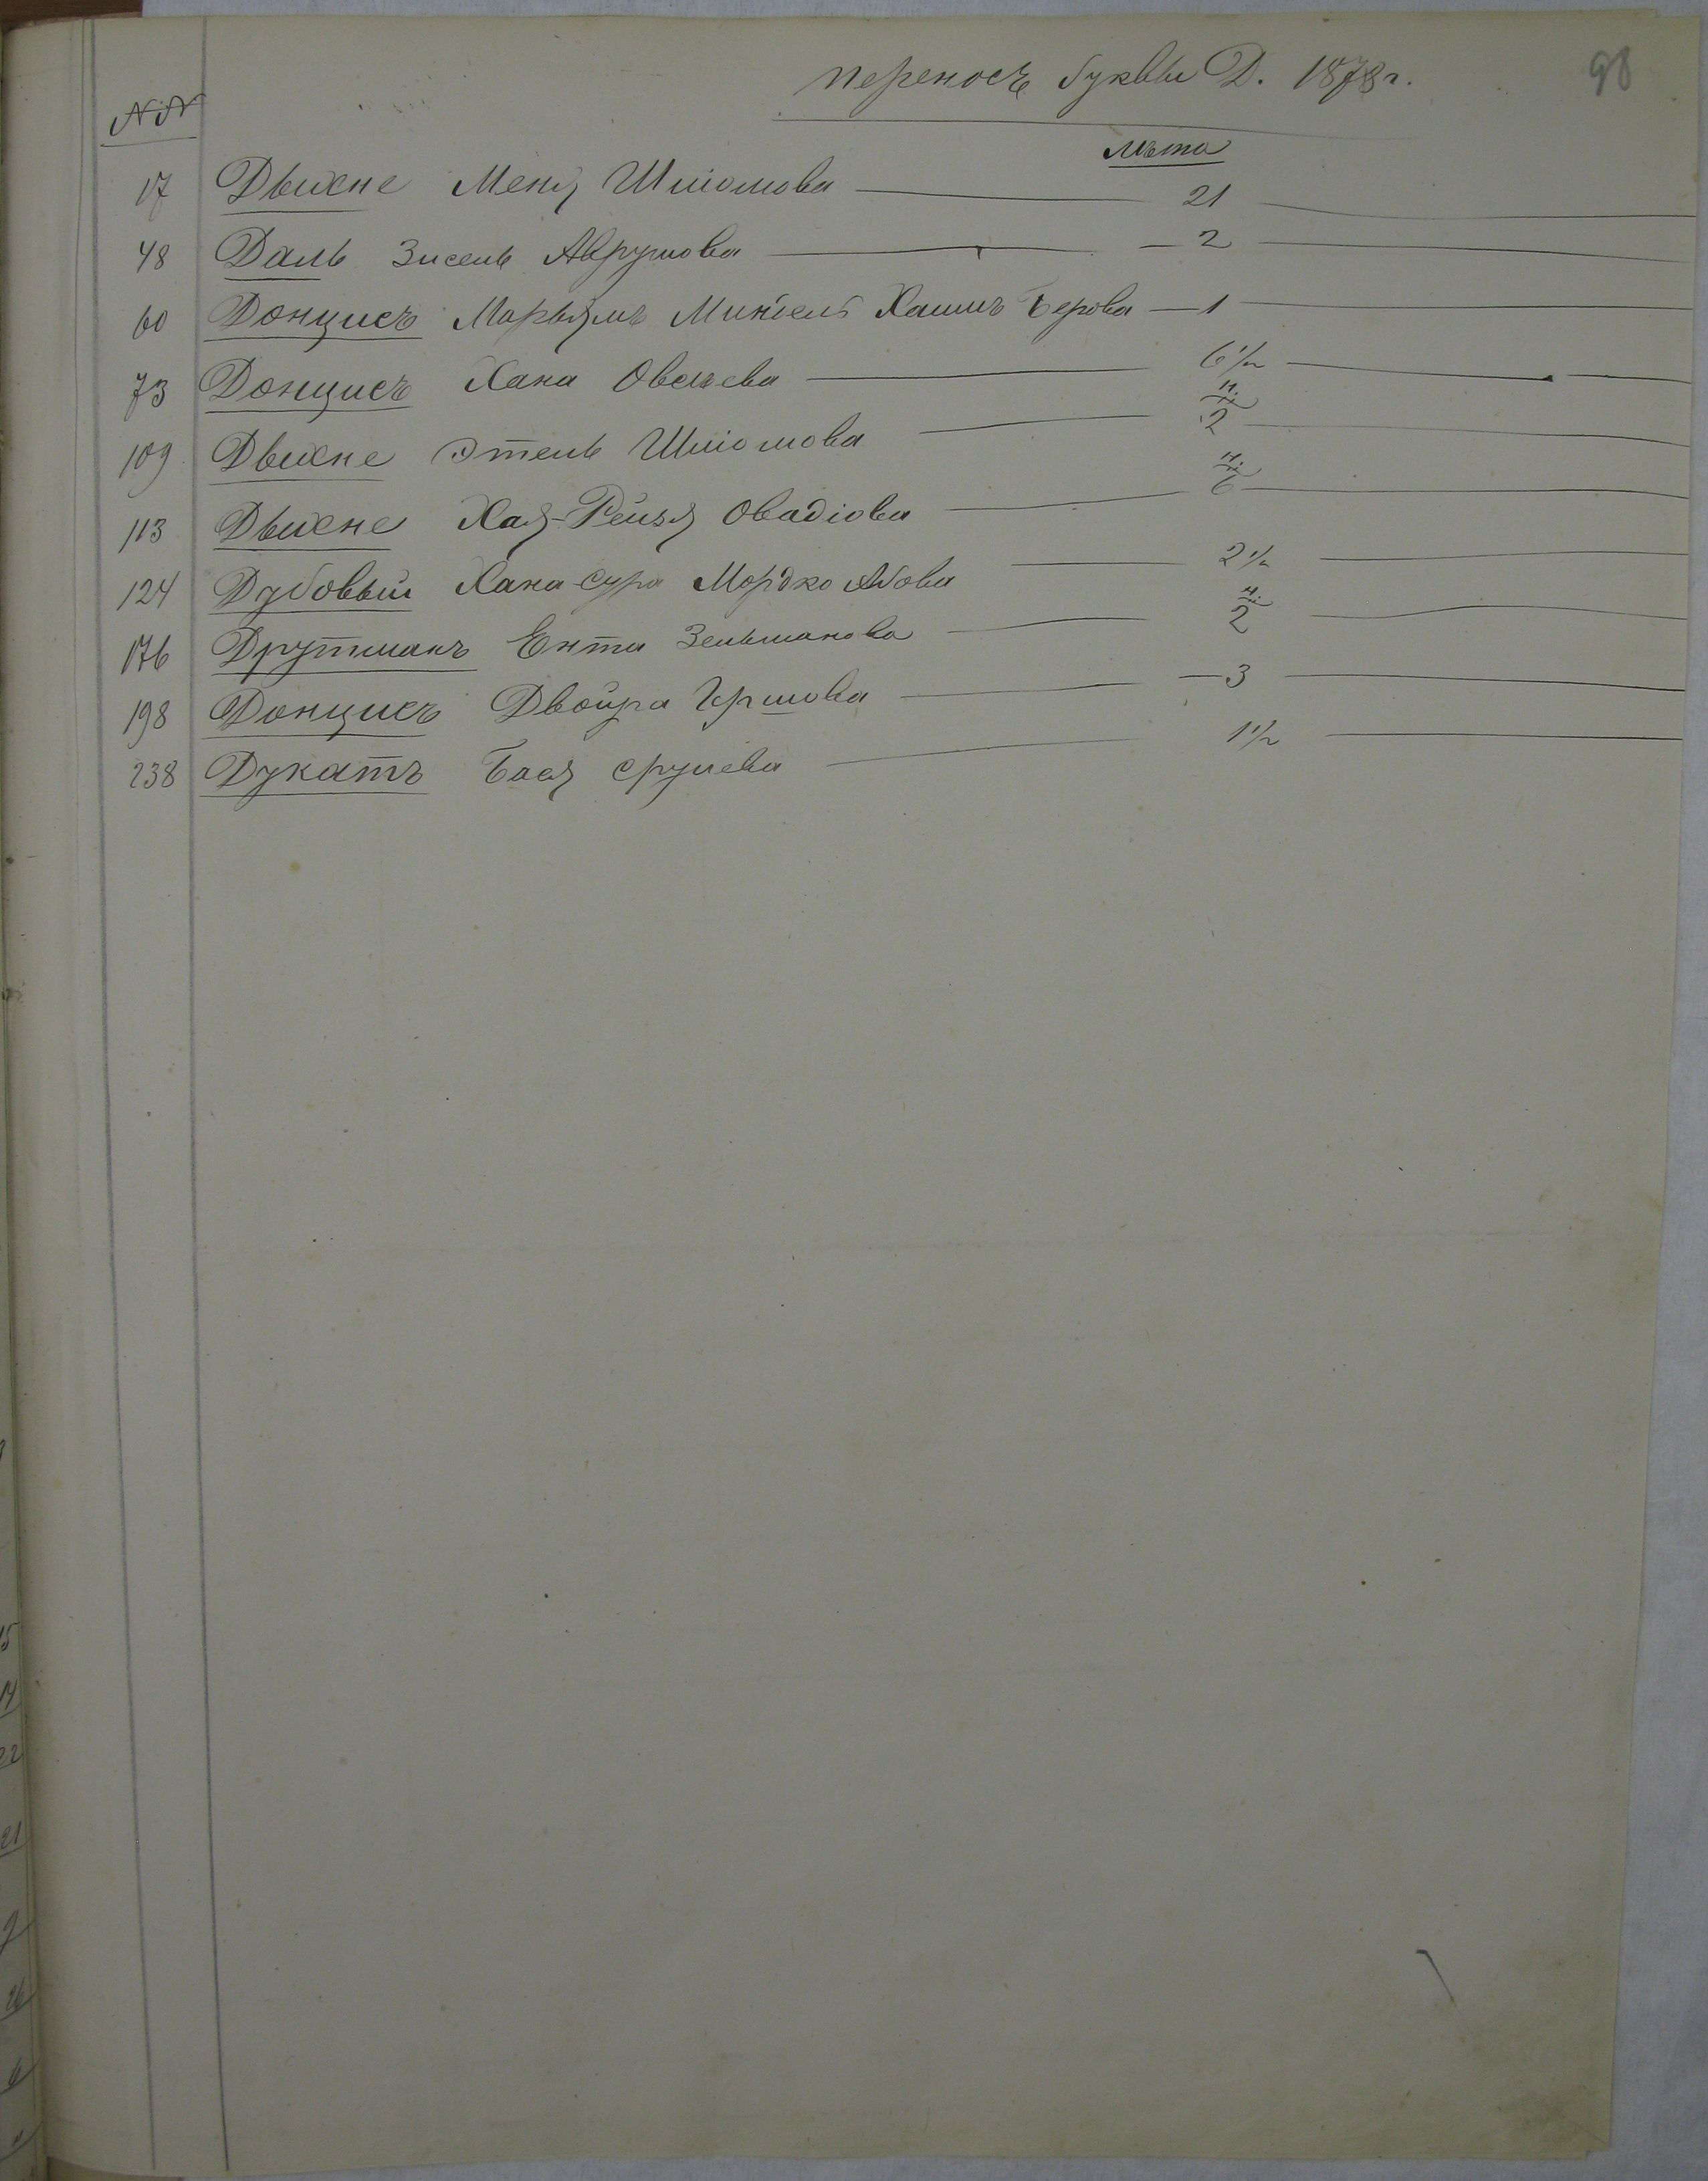 переносъ буквы Д. 1878 г.
98
NN
Лѣта
17 Дыхне Меня Шліомова — 21
48 Даль Зисель Аврумова — 2
60 Донцисъ Марьямъ Минdель Хаимъ Берова — 1
73 Донцисъ Хана Овсѣева — 6 1/2
109 Дыхне Этель Шліомова — м. 2
113 Дыхне Хая-Рейзя Овадіова — м. 6
124 Дубовый Хана-Сура Мордко Абова — 2 1/2
176 Друтманъ Ента Зельманова — м. 2
198 Донцисъ Двойра Гершова — 3
238 Дукатъ Бася Срулева — 1 1/2
15
14
22
21
9
26